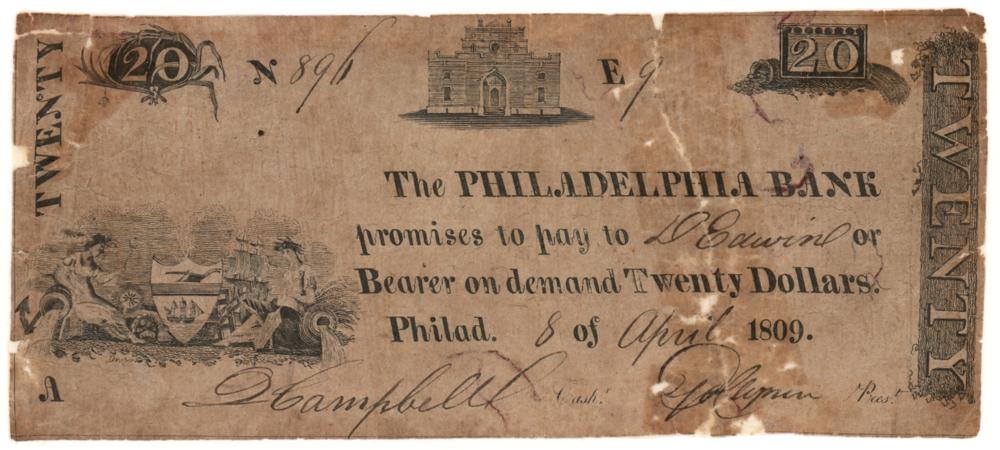 TWENTY
20
N 896
E 9
20
TWENTY
The PHILADELPHIA BANK
promises to pay to D Edwin or
Bearer on demand Twenty Dollars.
Philad. 8 of April 1809.
A
Campbell Cash.r
Pres.t